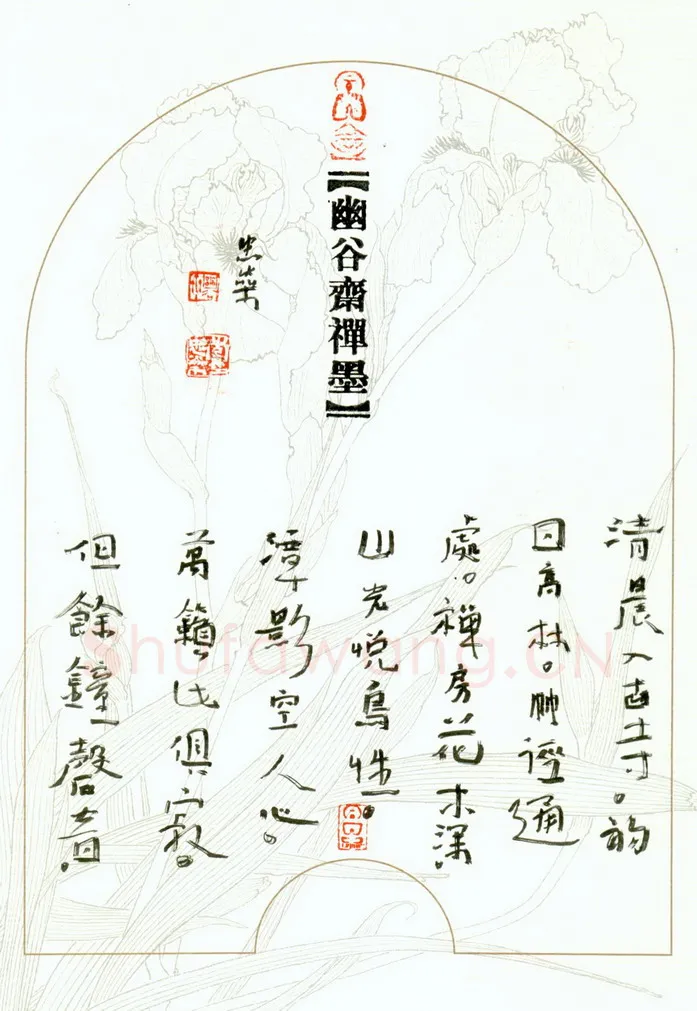 【幽谷齋禪墨】
清晨入古寺。初
日高林。竹徑通
處。禪房花木深。
山光悅鳥性。
潭影空人心。
萬籟此俱寂。
但餘鐘磬音。
Shufawang.CN